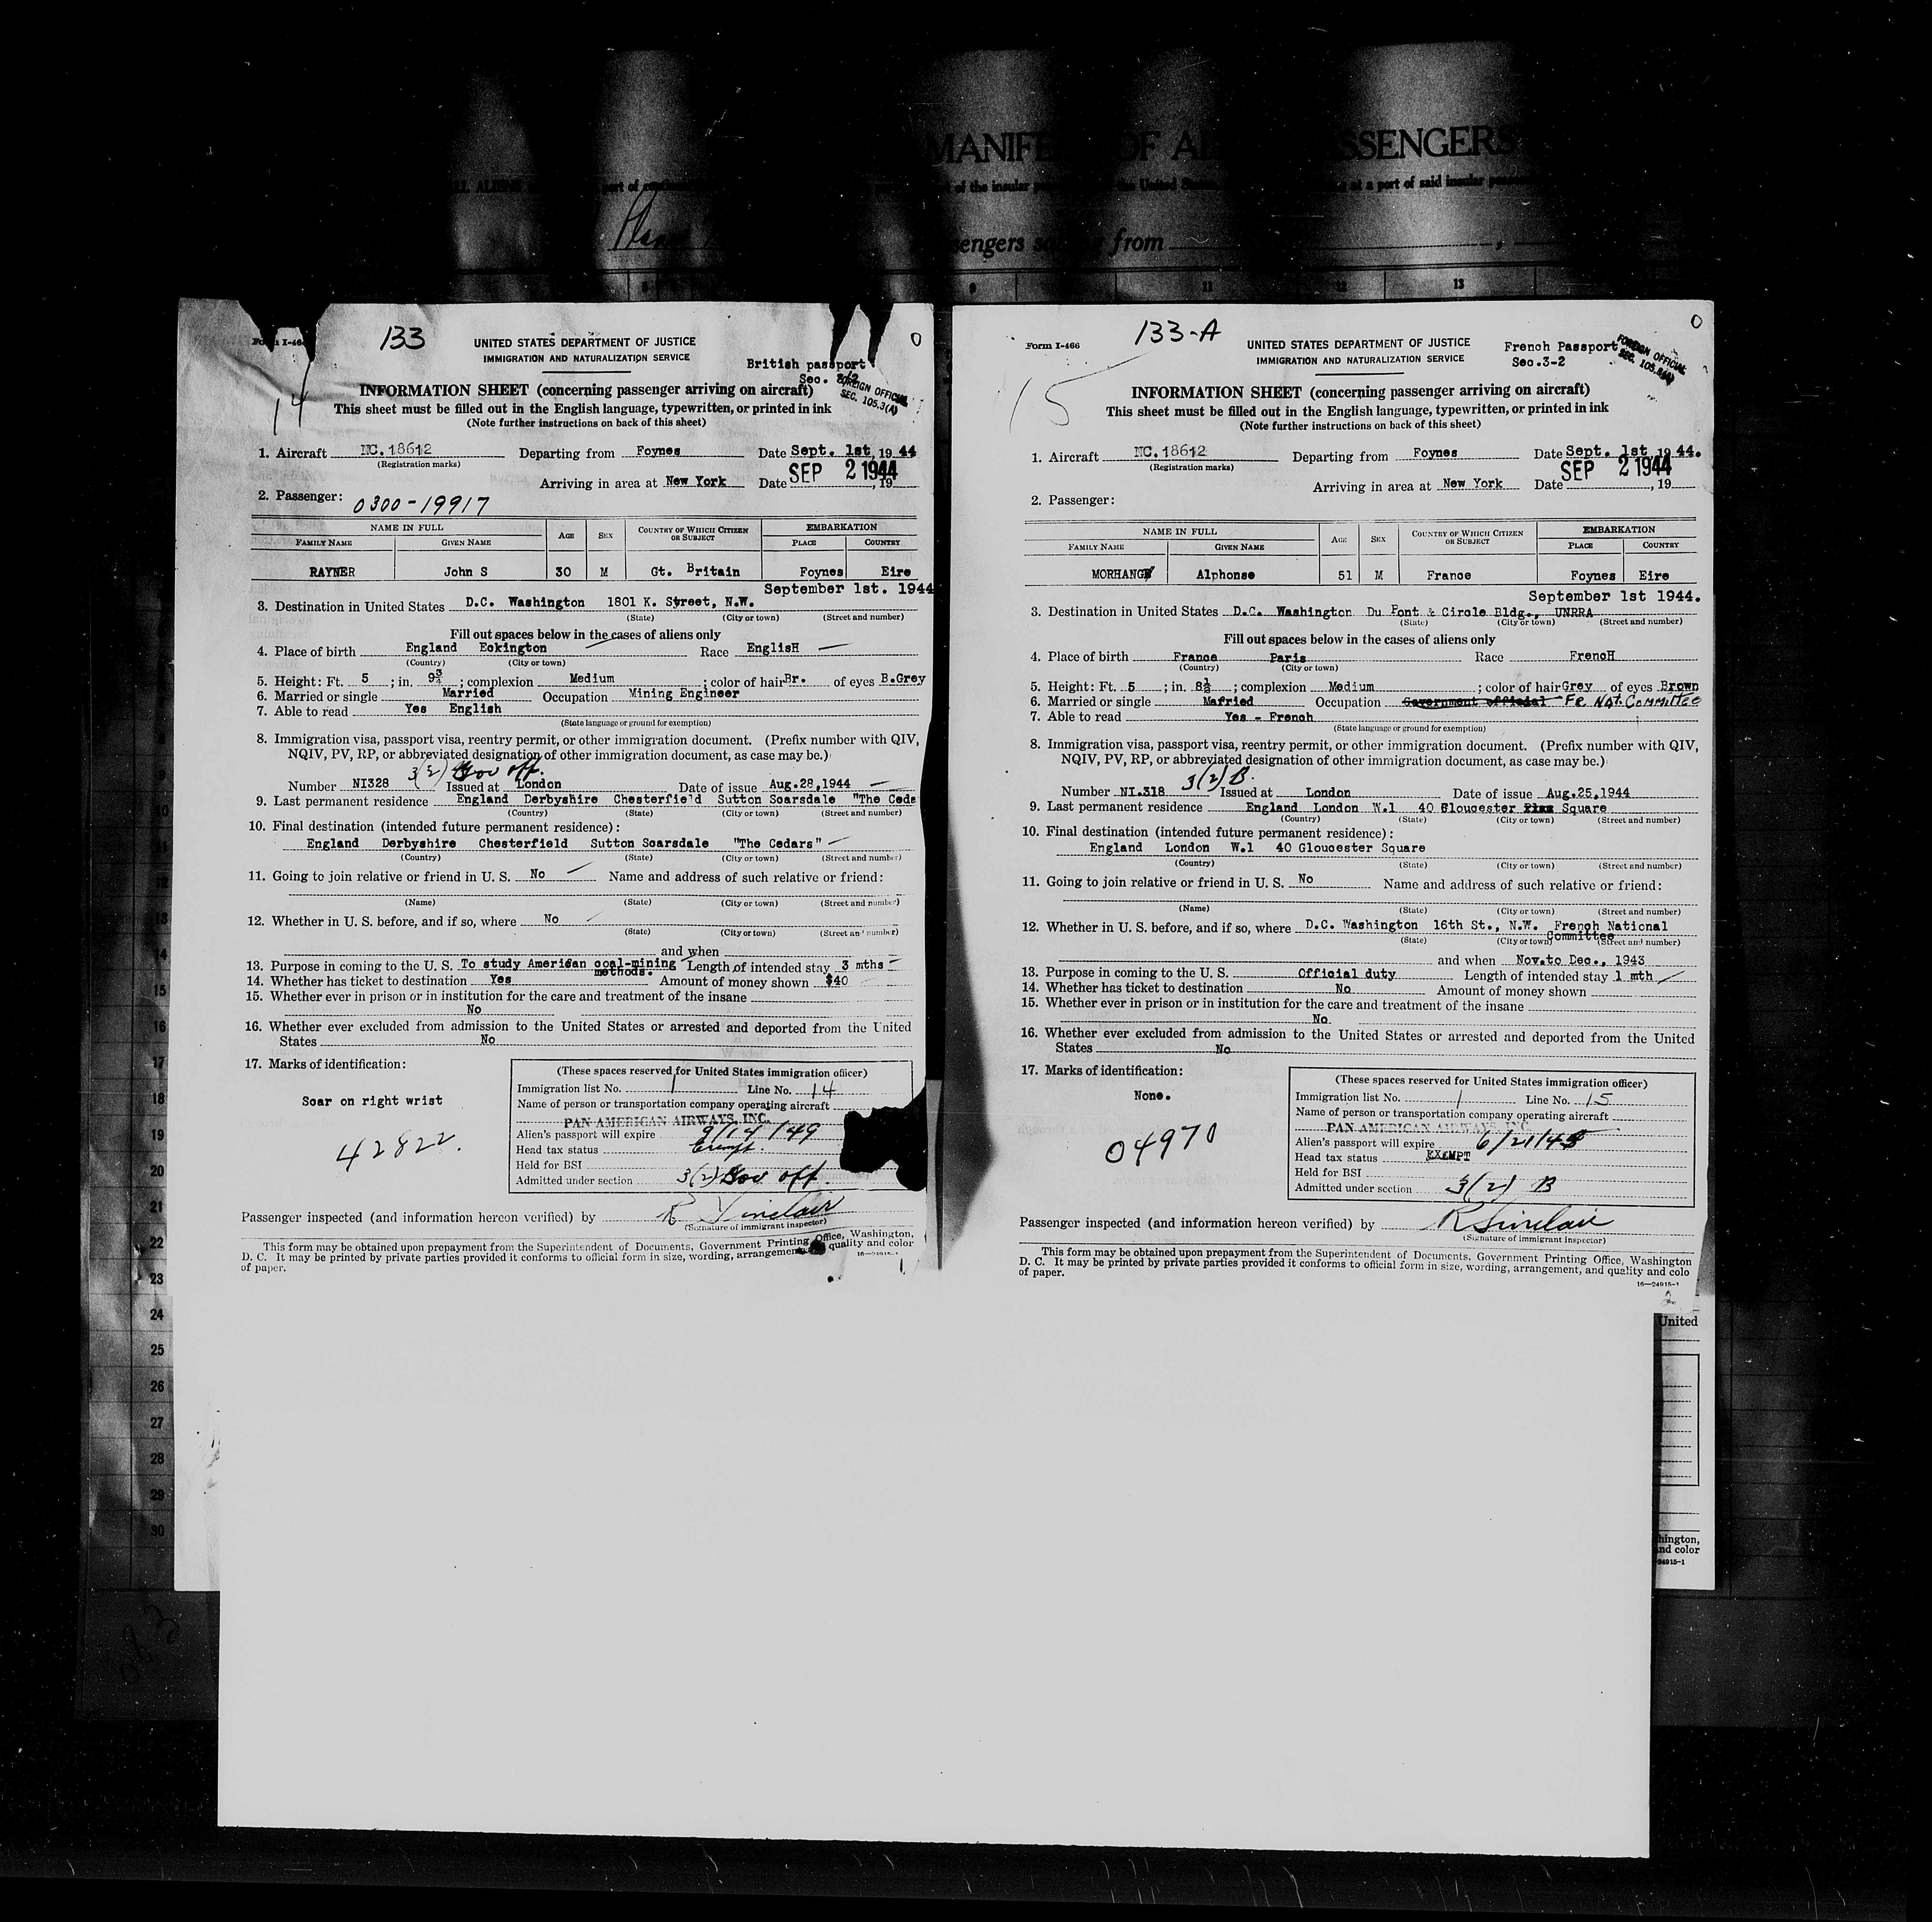 MANIFE OF AL SSENGERS
LL ALIENS
part of
of the insular
the United
at a port of said insular
engers from
9 11 12 13
133
Form I-46
UNITED STATES DEPARTMENT OF JUSTICE
IMMIGRATION AND NATURALIZATION SERVICE
British passport
Sec.
FOREIGN OFFICIAL
SEC. 105.3(A)
0
14
INFORMATION SHEET (concerning passenger arriving on aircraft)
This sheet must be filled out in the English language, typewritten, or printed in ink
(Note further instructions on back of this sheet)
1. Aircraft NC.18612 Departing from Foynes Date Sept. 1st, 19 44
(Registration marks)
Arriving in area at New York Date SEP 2 1944, 19
2. Passenger: 0300-19917
NAME IN FULL AGE SEX COUNTRY OF WHICH CITIZEN OR SUBJECT EMBARKATION
FAMILY NAME GIVEN NAME PLACE COUNTRY
RAYNER John S 30 M Gt. Britain Foynes Eire
September 1st. 1944
3. Destination in United States D.C. Washington 1801 K. Street, N.W.
(State) (City or town) (Street and number)
Fill out spaces below in the cases of aliens only
4. Place of birth England Eckington Race EnglisH
(Country) (City or town)
5. Height: Ft. 5; in. 9¾; complexion Medium; color of hair Br. of eyes B.Grey
6. Married or single Married Occupation Mining Engineer
7. Able to read Yes English
(State language or ground for exemption)
8. Immigration visa, passport visa, reentry permit, or other immigration document. (Prefix number with QIV,
NQIV, PV, RP, or abbreviated designation of other immigration document, as case may be.)
3(2) Gov off.
Number NI328 Issued at London Date of issue Aug.28,1944
9. Last permanent residence England Derbyshire Chesterfield Sutton Scarsdale "The Ceda
(Country) (State) (City or town) (Street and number)
10. Final destination (intended future permanent residence):
England Derbyshire Chesterfield Sutton Scarsdale "The Cedars"
(Country) (State) (City or town) (Street and number)
11. Going to join relative or friend in U. S. No Name and address of such relative or friend:
(Name) (State) (City or town) (Street and number)
12. Whether in U. S. before, and if so, where No
(State) (City or town) (Street and number)
and when
13. Purpose in coming to the U. S. To study American coal-mining methods. Length of intended stay 3 mths
14. Whether has ticket to destination Yes Amount of money shown $40
15. Whether ever in prison or in institution for the care and treatment of the insane
No
16. Whether ever excluded from admission to the United States or arrested and deported from the United
States No
17. Marks of identification:
Scar on right wrist
42822.
(These spaces reserved for United States immigration officer)
Immigration list No. 1 Line No. 14
Name of person or transportation company operating aircraft
PAN AMERICAN AIRWAYS, INC.
Alien's passport will expire 9/14/49
Head tax status Exempt.
Held for BSI
Admitted under section 3(2) Gov off.
Passenger inspected (and information hereon verified) by R Sinclair
(Signature of immigrant inspector)
This form may be obtained upon prepayment from the Superintendent of Documents, Government Printing Office, Washington,
D. C. It may be printed by private parties provided it conforms to official form in size, wording, arrangement quality and color
of paper.
16—24915-1
1
133-A
Form I-466
UNITED STATES DEPARTMENT OF JUSTICE
IMMIGRATION AND NATURALIZATION SERVICE
French Passport
Sec.3-2
FOREIGN OFFICIAL
SEC. 105.3(A)
0
15
INFORMATION SHEET (concerning passenger arriving on aircraft)
This sheet must be filled out in the English language, typewritten, or printed in ink
(Note further instructions on back of this sheet)
1. Aircraft NC.18612 Departing from Foynes Date Sept. 1st, 19 44.
(Registration marks)
Arriving in area at New York Date SEP 2 1944, 19
2. Passenger:
NAME IN FULL AGE SEX COUNTRY OF WHICH CITIZEN OR SUBJECT EMBARKATION
FAMILY NAME GIVEN NAME PLACE COUNTRY
MORHANGE Alphonse 51 M France Foynes Eire
September 1st 1944.
3. Destination in United States D.C. Washington Du Pont & Circle Bldg., UNRRA
(State) (City or town) (Street and number)
Fill out spaces below in the cases of aliens only
4. Place of birth France Paris Race FrencH
(Country) (City or town)
5. Height: Ft. 5; in. 8½; complexion Medium; color of hair Grey of eyes Brown
6. Married or single Married Occupation Government official - FR NAT. COMMITTEE
7. Able to read Yes - French
(State language or ground for exemption)
8. Immigration visa, passport visa, reentry permit, or other immigration document. (Prefix number with QIV,
NQIV, PV, RP, or abbreviated designation of other immigration document, as case may be.)
3(2) B.
Number NI.318 Issued at London Date of issue Aug.25,1944
9. Last permanent residence England London W.1 40 Gloucester Square
(Country) (State) (City or town) (Street and number)
10. Final destination (intended future permanent residence):
England London W.1 40 Gloucester Square
(Country) (State) (City or town) (Street and number)
11. Going to join relative or friend in U. S. No Name and address of such relative or friend:
(Name) (State) (City or town) (Street and number)
12. Whether in U. S. before, and if so, where D.C. Washington 16th St., N.W. French National Committee
(State) (City or town) (Street and number)
and when Nov.to Dec., 1943
13. Purpose in coming to the U. S. Official duty Length of intended stay 1 mth
14. Whether has ticket to destination No Amount of money shown
15. Whether ever in prison or in institution for the care and treatment of the insane
No
16. Whether ever excluded from admission to the United States or arrested and deported from the United
States No
17. Marks of identification:
None.
04970
(These spaces reserved for United States immigration officer)
Immigration list No. 1 Line No. 15
Name of person or transportation company operating aircraft
PAN AMERICAN AIRWAYS, INC.
Alien's passport will expire 6/21/45
Head tax status EXEMPT
Held for BSI
Admitted under section 3(2) B
Passenger inspected (and information hereon verified) by R Sinclair
(Signature of immigrant inspector)
This form may be obtained upon prepayment from the Superintendent of Documents, Government Printing Office, Washington
D. C. It may be printed by private parties provided it conforms to official form in size, wording, arrangement, and quality and colo
of paper.
16—24915-1
2
United
hington,
nd color
24915-1
9
10
11
12
13
14
15
16
17
18
19
20
21
22
23
24
25
26
27
28
29
30